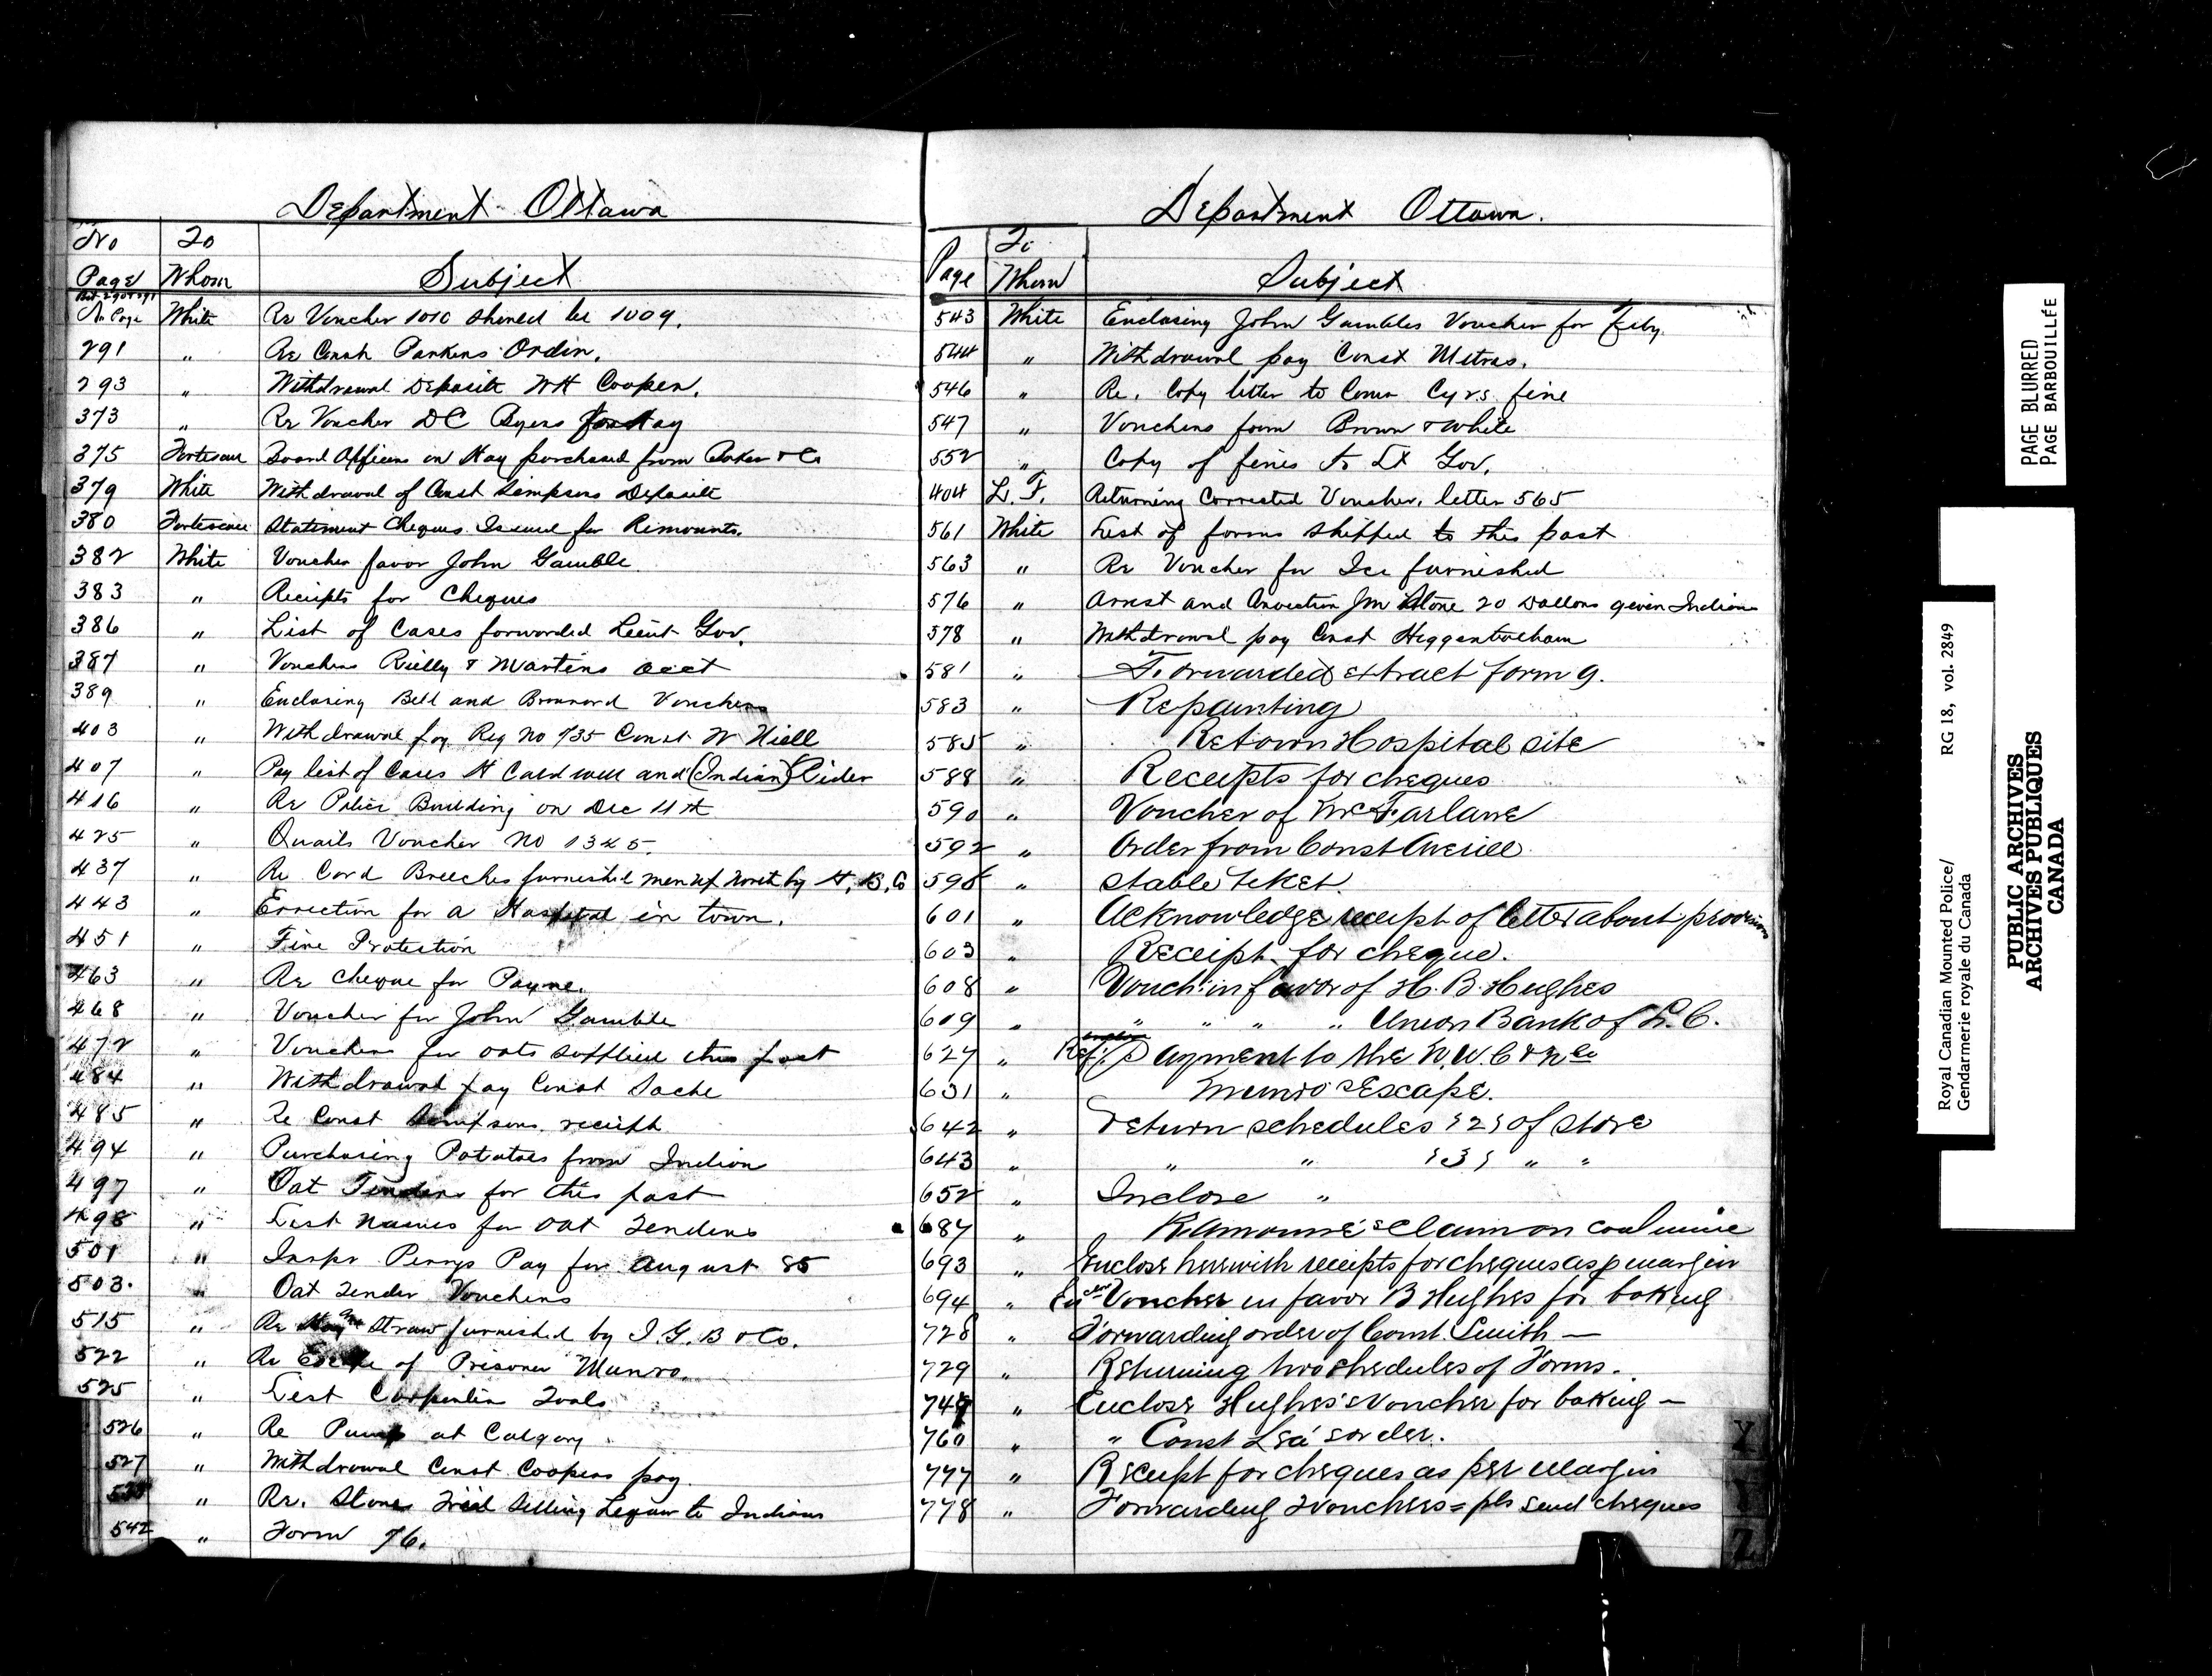 Department Ottawa
No To
Page Whom Subject
On Page White Re Voucher 1010 should be 1009.
291 " Re Const Parkens Order.
293 " Withdrawal Deposits WH Cooper.
373 " Re Voucher DC Byers for Hay
375 Fortescue Board Officers on Hay purchased from Baker & Co
379 White Withdrawal of Const Simpsons Deposite
380 Fortescue Statement Cheques Issued for Remounts.
382 White Voucher favor John Gamble
383 " Receipts for Cheques
386 " List of Cases forwarded Lieut Gov.
387 " Vouchers Reilly & Martins acct
389 " Enclosing Bell and Vouchers
403 " Withdrawal pay Reg No 735 Const W Niell
407 " Pay list of Cases H Caldwell and (Indian) Rider
416 " Re Police Building on Dec 4th
425 " Quails Voucher No 1325.
437 " Re Cord Breeches furnished men up north by H. B. Co
443 " Errection for a Hospital in town.
451 " Fire Protection
463 " Re Cheque for Payne.
468 " Voucher for John Gamble
472 " Vouchers for oats supplied this post
484 " Withdrawal pay Const Sache
485 " Re Const Simpsons receipt
494 " Purchasing Potatoes from Indian
497 " Oat Tenders for this post
498 " List names for oat Tenders
501 " Inspr Perrys Pay for August 85
503. " Oat Tender Vouchers
515 " Re Hay and Straw furnished by I. G. B & Co.
522 " Re Escape of Prisoner Munro.
525 " List Carpenter Tools
526 " Re Pump at Calgary
527 " Withdrawal Const Coopers pay.
" Re. Stones Tried Selling Liquor to Indians
542 " Form 76.
Department Ottawa.
Page To Whom Subject
543 White Enclosing John Gambles Voucher for Feby.
544 " Withdrawal pay Const Metras.
546 " Re. Copy letter to Comr Cyrs fine
547 " Vouchers from Brown & White
552 " Copy of fines to Lt Gov.
404 L. F. Returning Corrected Voucher. letter 565
561 White List of forms shipped to this post
563 " Re Voucher for Ice furnished
576 " Arrest and Convection Jm Stone 20 Dollors given Indians
578 " Withdrawal pay Const Heggentbotham
581 " Forwarded extract form 9.
583 " Repainting
585 " Re town Hospital site
588 " Receipts for cheques
590 " Voucher of McFarlane
592 " Order from Const Averill
598 " Stable Teket
601 " Acknowledge receipt of letter about provisions
603 " Receipt for cheque.
608 " Vouch: in favor of H. B. Hughes
609 " " " " " Union Bank of L. C.
627 " Ref: Payment to the N. W. C & N Co
631 " Munro's Escape.
642 " Return schedules {2} of store
643 " " " {3} " "
652 " Inclose "
687 " claim on coal mine
693 " Enclose herewith receipts for cheques as p margin
694 " Voucher in favor B Hughes for baking
728 " Forwarding order of Const. Smith —
729 " Returning two shedules of Forms.
749 " Enclose Hughes's voucher for baking —
760 " " Const Lea's order.
777 " Receipt for cheques as per margin
778 " Forwarding vouchers = pls send cheques
X
Y
Z
PAGE BLURRED
PAGE BARBOUILLÉE
Royal Canadian Mounted Police/ RG 18, vol. 2849
Gendarmerie royale du Canada
PUBLIC ARCHIVES
ARCHIVES PUBLIQUES
CANADA